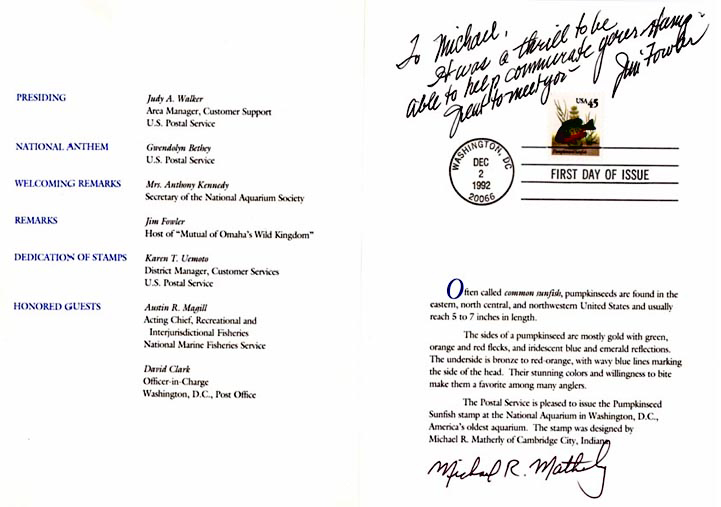 PRESIDING
Judy A. Walker
Area Manager, Customer Support
U.S. Postal Service
NATIONAL ANTHEM
Gwendolyn Bethey
U.S. Postal Service
WELCOMING REMARKS
Mrs. Anthony Kennedy
Secretary of the National Aquarium Society
REMARKS
Jim Fowler
Host of "Mutual of Omaha's Wild Kingdom"
DEDICATION OF STAMPS
Karen T. Uemoto
District Manager, Customer Services
U.S. Postal Service
HONORED GUESTS
Austin R. Magill
Acting Chief, Recreational and
Interjurisdictional Fisheries
National Marine Fisheries Service
David Clark
Officer-in-Charge
Washington, D.C., Post Office
To Michael,
It was a thrill to be
able to help commurate your stamp-
great to meet you-
Jim Fowler
USA 45
Pumpkinseed Sunfish
WASHINGTON, DC
DEC
2
1992
20066
FIRST DAY OF ISSUE
Often called common sunfish, pumpkinseeds are found in the
eastern, north central, and northwestern United States and usually
reach 5 to 7 inches in length.
The sides of a pumpkinseed are mostly gold with green,
orange and red flecks, and iridescent blue and emerald reflections.
The underside is bronze to red-orange, with wavy blue lines marking
the side of the head. Their stunning colors and willingness to bite
make them a favorite among many anglers.
The Postal Service is pleased to issue the Pumpkinseed
Sunfish stamp at the National Aquarium in Washington, D.C.,
America's oldest aquarium. The stamp was designed by
Michael R. Matherly of Cambridge City, Indiana.
Michael R. Matherly